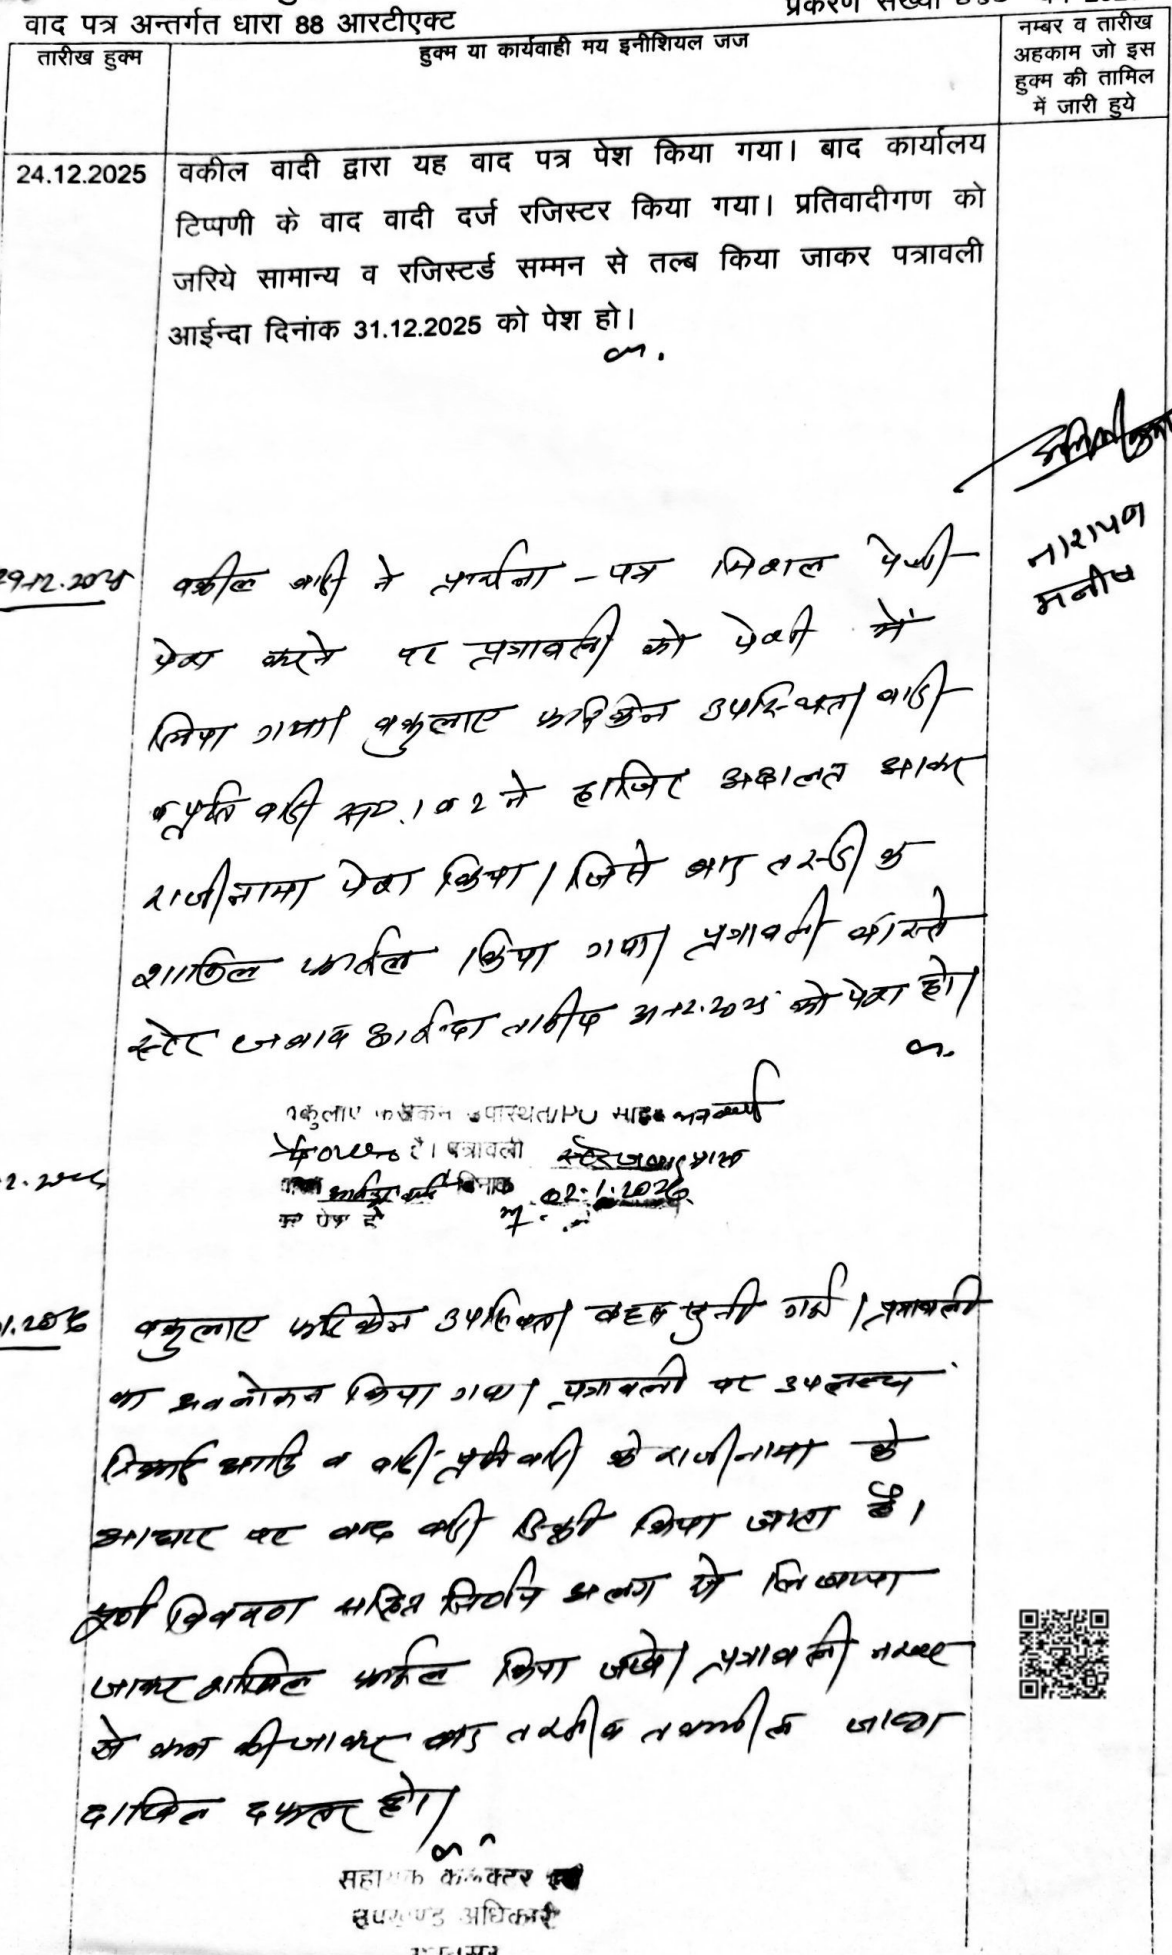 वाद पत्र अन्तर्गत धारा 88 आरटीएक्ट
प्रकरण संख्या
तारीख हुक्म
हुक्म या कार्यवाही मय इनीशियल जज
नम्बर व तारीख
अहकाम जो इस
हुक्म की तामिल
में जारी हुये
24.12.2025
वकील वादी द्वारा यह वाद पत्र पेश किया गया। बाद कार्यालय
टिप्पणी के वाद वादी दर्ज रजिस्टर किया गया। प्रतिवादीगण को
जरिये सामान्य व रजिस्टर्ड सम्मन से तल्ब किया जाकर पत्रावली
आईन्दा दिनांक 31.12.2025 को पेश हो।
नारायण
मनीष
वकील वादी ने प्रार्थना-पत्र मिशल पेशी
पेश करने पर पत्रावली को पेशी में
लिया गया। वकुलाए फरिकेन उपस्थित। वादी
व प्रतिवादी सं. 1 व 2 ने हाजिर अदालत आकर
राजीनामा पेश किया। जिसे बाद तस्दीक
शामिल फाईल किया गया। पत्रावली वास्ते
स्टे जवाब आईन्दा तारीख को पेश हो।
वकुलाए उपस्थित। PO
है। पत्रावली
दिनांक 02.1.2026
को पेश हो
वकुलाए फरिकेन उपस्थित। बहस सुनी गई। पत्रावली
का अवलोकन किया गया। पत्रावली पर उपलब्ध
रिकार्ड आदि व वादी प्रतिवादी के राजीनामा के
आधार पर वाद वादी डिक्री किया जाता है।
पूर्ण विवरण सहित निर्णय अलग से लिखाया
जाकर शामिल फाईल किया जावे। पत्रावली नम्बर
से कम की जाकर बाद तरतीब तकमील जाब्ता
दाखिल दफ्तर हो।
सहायक कलक्टर एवं
उपखण्ड अधिकारी